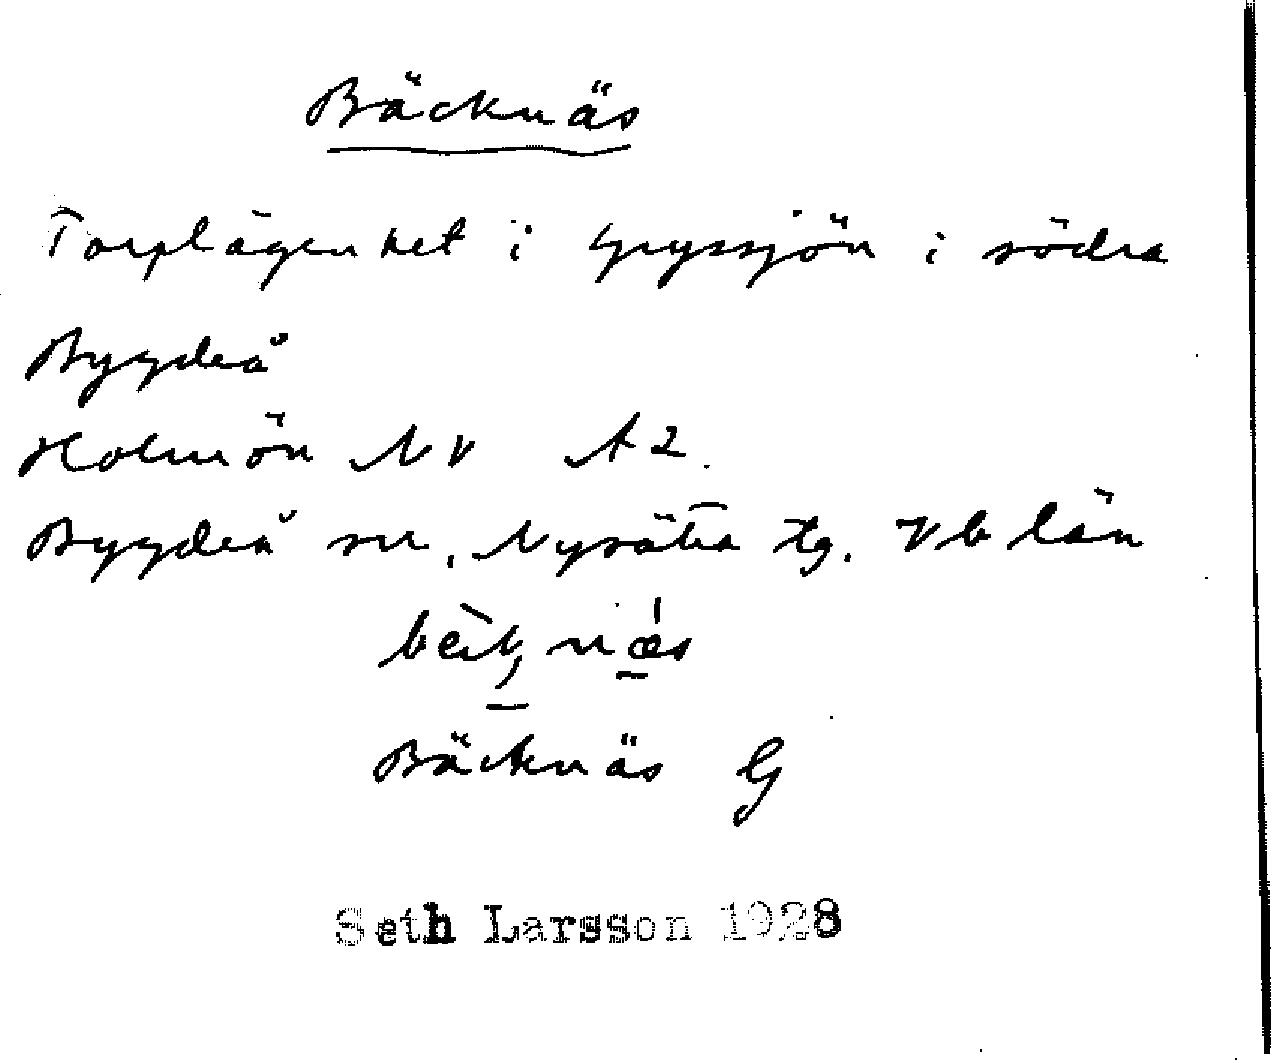 Bäcknäs
Torplägenhet i Gryssjön i södra
Bygdeå
Holmön NV A2.
Bygdeå sn. Nysätra tg. Vb län
Bäcknäs G
Seth Larsson 1928